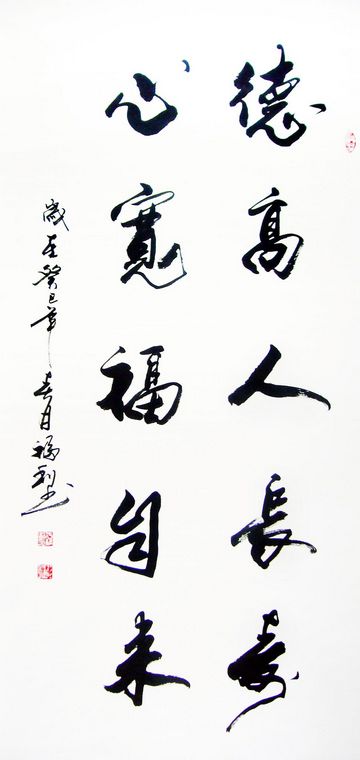 德高人長壽
心寬福自來
歲在癸巳年春月福利书